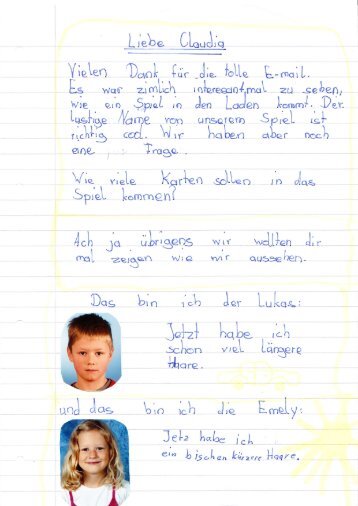 Liebe Claudia
Vielen Dank für die tolle E-mail.
Es war zimlich interesantmal zu sehen,
wie ein Spiel in den Laden kommt. Der
lustige Name von unserem Spiel ist
richtig cool. Wir haben aber noch
eine Frage...
Wie viele Karten sollen in das
Spiel kommen?
Ach ja übrigens wir wollten dir
mal zeigen wie wir aussehen.
Das bin ich der Lukas:
Jetzt habe ich
schon viel längere
Haare.
und das bin ich die Emely:
Jetz habe ich
ein bischen kürzere Haare.